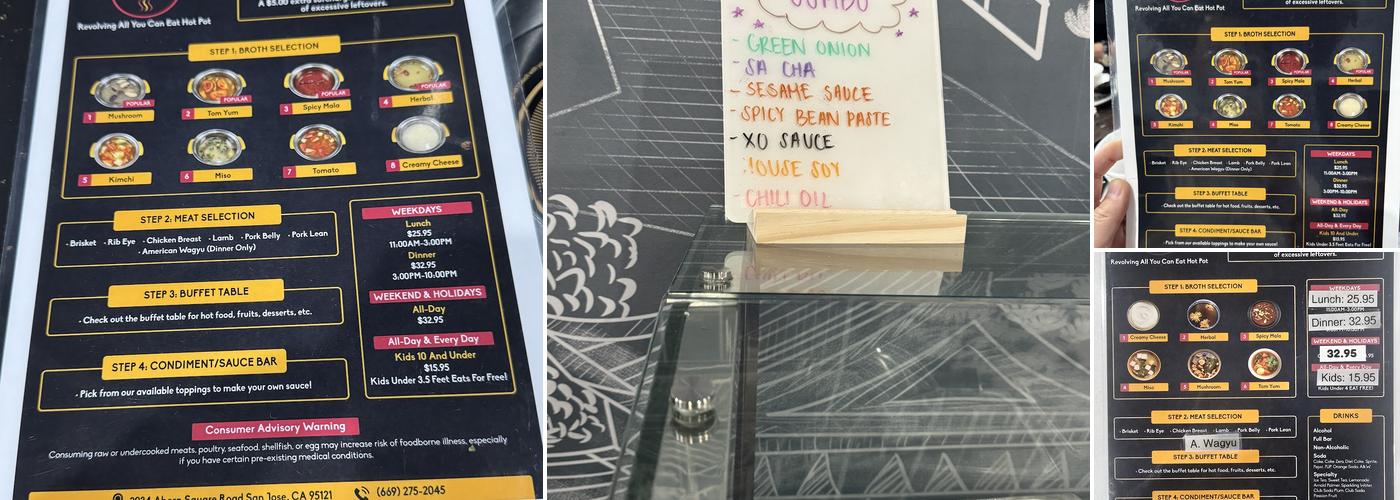 A $5.00 extra
of excessive leftovers.
Revolving All You Can Eat Hot Pot
STEP 1: BROTH SELECTION
POPULAR
POPULAR
POPULAR
POPULAR
1 Mushroom
2 Tom Yum
3 Spicy Mala
4 Herbal
5 Kimchi
6 Miso
7 Tomato
8 Creamy Cheese
STEP 2: MEAT SELECTION
· Brisket · Rib Eye · Chicken Breast · Lamb · Pork Belly · Pork Lean
· American Wagyu (Dinner Only)
STEP 3: BUFFET TABLE
· Check out the buffet table for hot food, fruits, desserts, etc.
STEP 4: CONDIMENT/SAUCE BAR
· Pick from our available toppings to make your own sauce!
WEEKDAYS
Lunch
$25.95
11:00AM-3:00PM
Dinner
$32.95
3:00PM-10:00PM
WEEKEND & HOLIDAYS
All-Day
$32.95
All-Day & Every Day
Kids 10 And Under
$15.95
Kids Under 3.5 Feet Eats For Free!
Consumer Advisory Warning
Consuming raw or undercooked meats, poultry, seafood, shellfish, or egg may increase risk of foodborne illness, especially
if you have certain pre-existing medical conditions.
Square Road San Jose, CA 95121
(669) 275-2045
- GREEN ONION
- SA CHA
- SESAME SAUCE
- SPICY BEAN PASTE
- XO SAUCE
HOUSE SOY
CHILI OIL
of excessive leftovers.
Revolving All You Can Eat Hot Pot
STEP 1: BROTH SELECTION
POPULAR
POPULAR
POPULAR
POPULAR
1 Mushroom
2 Tom Yum
3 Spicy Mala
4 Herbal
5 Kimchi
6 Miso
7 Tomato
8 Creamy Cheese
STEP 2: MEAT SELECTION
· Brisket · Rib Eye · Chicken Breast · Lamb · Pork Belly · Pork Lean
· American Wagyu (Dinner Only)
STEP 3: BUFFET TABLE
· Check out the buffet table for hot food, fruits, desserts, etc.
STEP 4: CONDIMENT/SAUCE BAR
· Pick from our available toppings to make your own sauce!
WEEKDAYS
Lunch
$25.95
11:00AM-3:00PM
Dinner
$32.95
3:00PM-10:00PM
WEEKEND & HOLIDAYS
All-Day
$32.95
All-Day & Every Day
Kids 10 And Under
$15.95
Kids Under 3.5 Feet Eats For Free!
of excessive leftovers.
Revolving All You Can Eat Hot Pot
STEP 1: BROTH SELECTION
1 Creamy Cheese
2 Herbal
3 Spicy Mala
4 Miso
5 Mushroom
6 Tom Yum
STEP 2: MEAT SELECTION
· Brisket · Rib Eye · Chicken Breast · Lamb · Pork Belly · Pork Lean
A. Wagyu
STEP 3: BUFFET TABLE
· Check out the buffet table for hot food, fruits, desserts, etc.
STEP 4: CONDIMENT/SAUCE BAR
WEEKDAYS
Lunch: 25.95
Dinner: 32.95
WEEKEND & HOLIDAYS
32.95
All-Day & Every Day
Kids: 15.95
Kids Under 4 EAT FREE!
DRINKS
Alcohol
Full Bar
Non-Alcoholic
Soda
Specialty